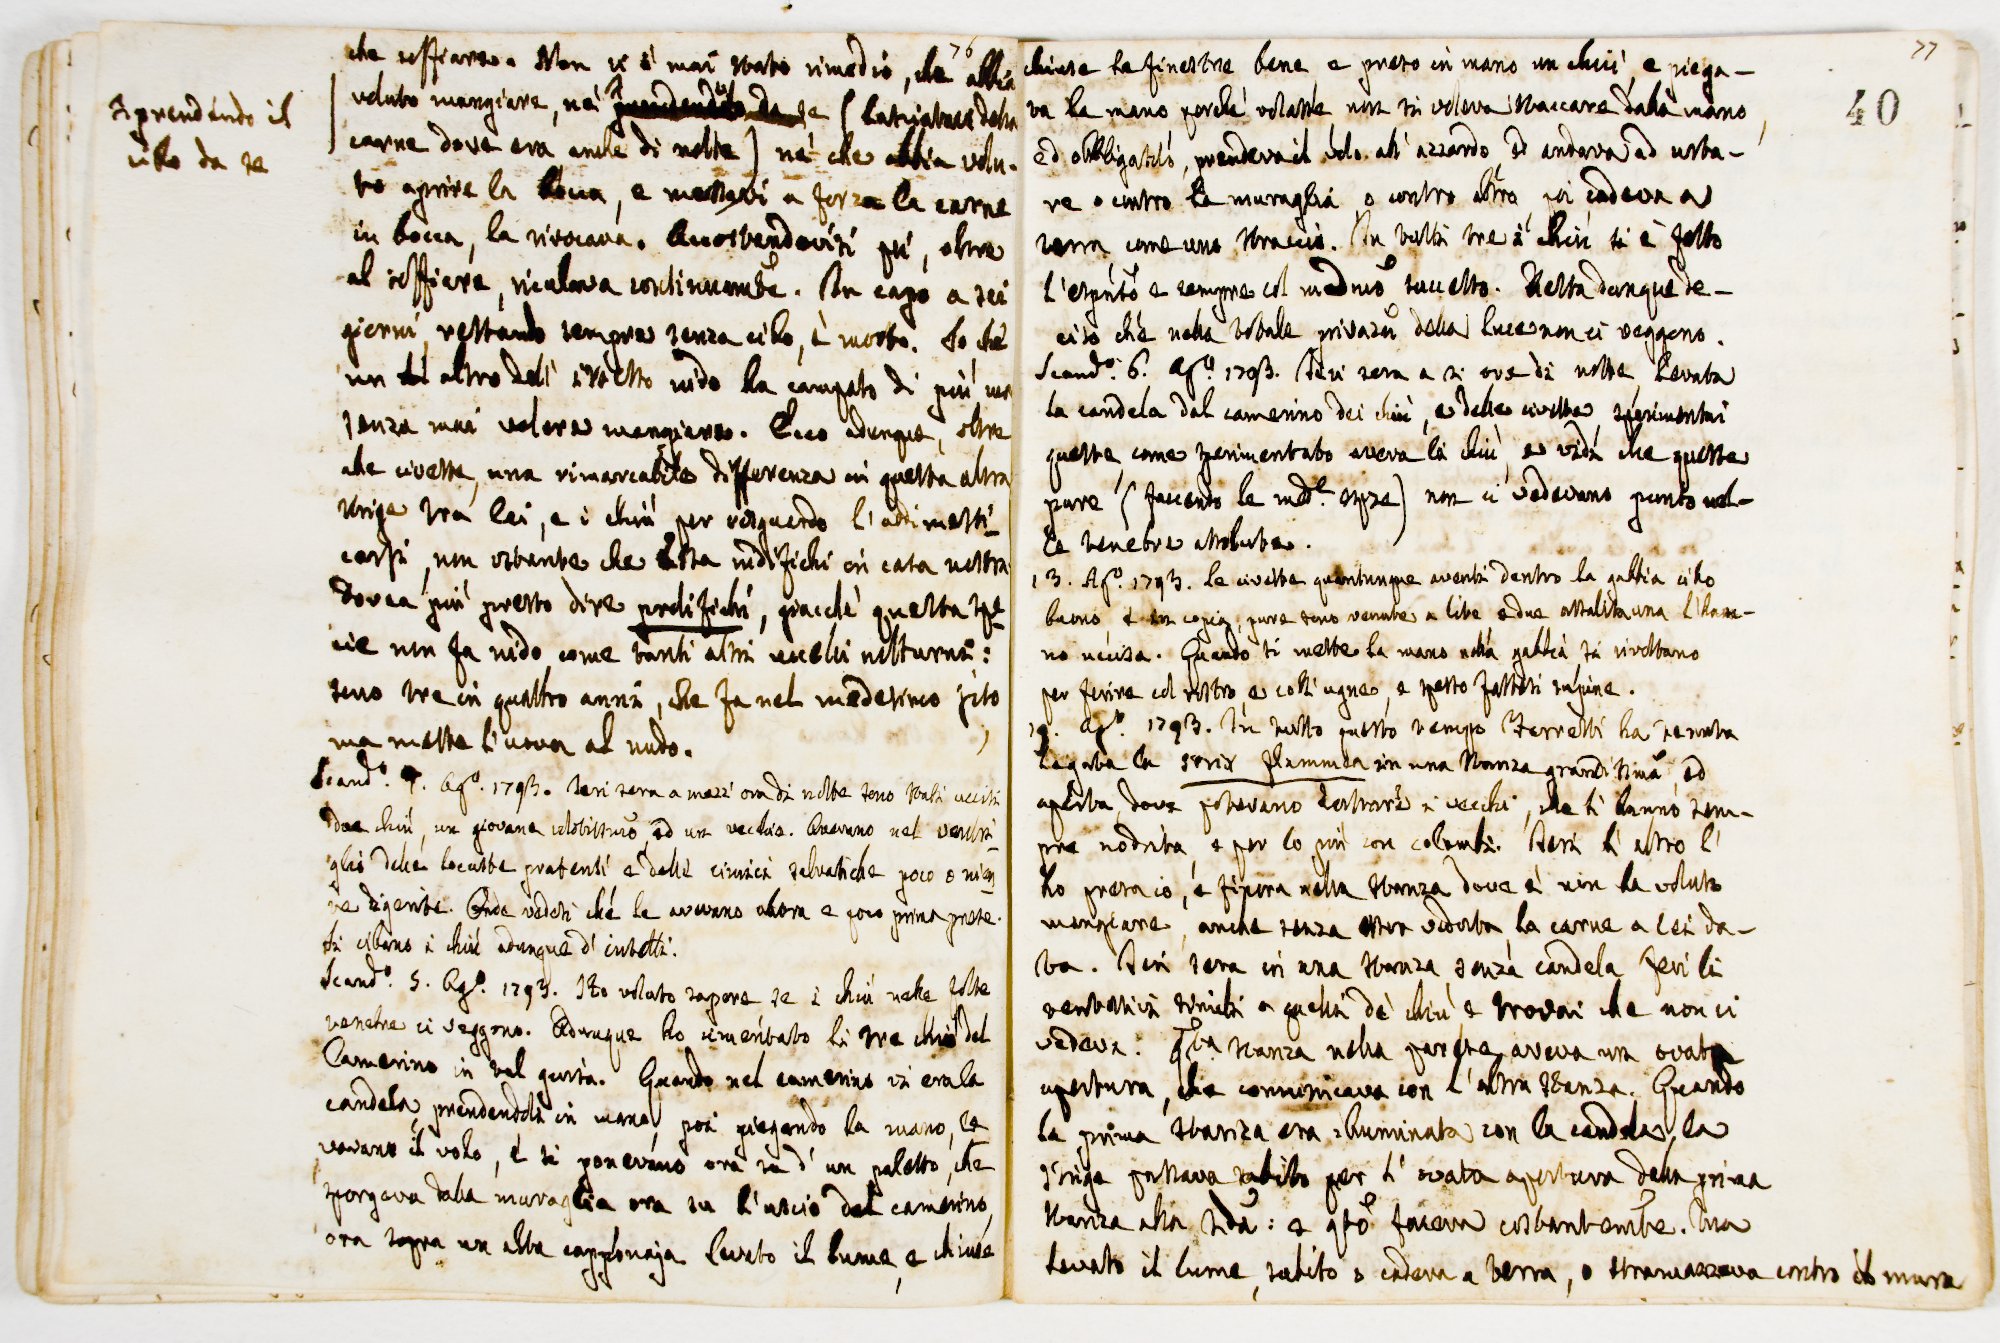 76
Aprendendo il
cibo da se
che soffiarso. Non vi è mai stato rimedio, che abbia
voluto mangiare, nè prendendolo da se (lasciatavi della
carne dove era anche di notte) nè che abbia volu-
to aprire la bocca, e messavi a forza la carne
in bocca, la rivocava. Accostandovisi più, oltre
al soffiare, riculava continuamte. In capo a sei
giorni, restando sempre senza cibo, è morto. So che
un altro dell' istesso nido ha campato di più ma
senza mai volere mangiare. Ecco adunque, oltre
che civetta, una rimarcabile differenza in questa altra
strige tra lei, e i chiù per risguardo l'addimesti-
carsi, non ostante che essa nidifichi in casa nostra
dovea più presto dire prolifichi, giacchè questa spe-
cie non fa nido come tanti altri uccelli notturni:
sono tre in quattro anni, che fa nel medesimo sito
ma mette l'uova al nudo.
Scando. 4. Ago. 1793. Ieri sera a mezz' ora di notte sono stati uccisi
due chiù, un giovane adobistimo, ed un vecchio. Avevano nel ventri-
glio delle locuste pratensi e delle cimici selvatiche poco o nien-
te digerite. Onde vedesi che le avevano allora e poco prima prese.
Si cibano i chiù adunque d' insetti.
Scando. 5. Ago. 1793. Ho voluto sapere se i chiù nelle folte
tenebre ci veggono. Adunque ho cimentato li tre chiù del
Camerino in tal guisa. Quando nel camerino vi era la
candela, prendendoli in mano, poi piegando la mano, le-
vavano il volo, e si ponevano ora su d' un paletto, che
sporgeva dalla muraglia ora su l'uscio del camerino,
ora sopra un alta capponaja. Levato il lume, e chiuse
77
40
chiuse le finestre bene e preso in mano un chiù, e piega-
va la mano perchè volasse non si voleva staccare dalla mano,
ed obbligatolo, prendeva il volo all' azzardo, ed andava ad urta-
re o contro la muraglia o contro altro, poi cadeva a
terra, come uno straccio. In tutti tre i chiù si è fatto
l'esprimto e sempre col medmo successo. Resta dunque de-
ciso che nella totale privazn della luce non ci veggono.
Scando. 6. Ago. 1793. Ieri sera a si ore di notte, levata
la candela dal camerino dei chiù, e delle civette, sperimentai
queste, come sperimentato aveva li chiù, e vidi che queste
pure (facendo le mede. espze) non ci vedevano punto nel-
le tenebre assolute.
13. Ago. 1793. Le civette quantunque aventi dentro la gabbia cibo
buono e in copia, pure sono venute a lite e due assalita una l'han-
no uccisa. Quando si mette la mano nella gabbia, si rivoltano
per ferire col rostro, e colli ugne, e spesso fattesi supine.
19. Ago. 1793. In tutto questo tempo Ferretti ha tenuta
legata la strix flammea in una stanza grandissima ed
aperta, dove potevano entrarci i vecchi, che l' hanno sem-
pre nodrita, e per lo più con colombi. Ieri l' altro l'
ho presa io, e finora nella stanza dove è non ha voluto
mangiare, anche senza esser veduta, la carne a lei da-
ta. Ieri sera in una stanza senza candela feci li
tentativi simili a quelli de' chiù e trovai che non ci
vedeva. Qta stanza nella parete aveva un ovata
apertura, che comunicava con l' altra stanza. Quando
la prima stanza era illuminata con la candela, la
strige passava subito per l' ovata apertura della prima
stanza alla 2da: e qto faceva costantemte. Ma
levato il lume, subito o cadeva a terra, o stramazzava contro il mura